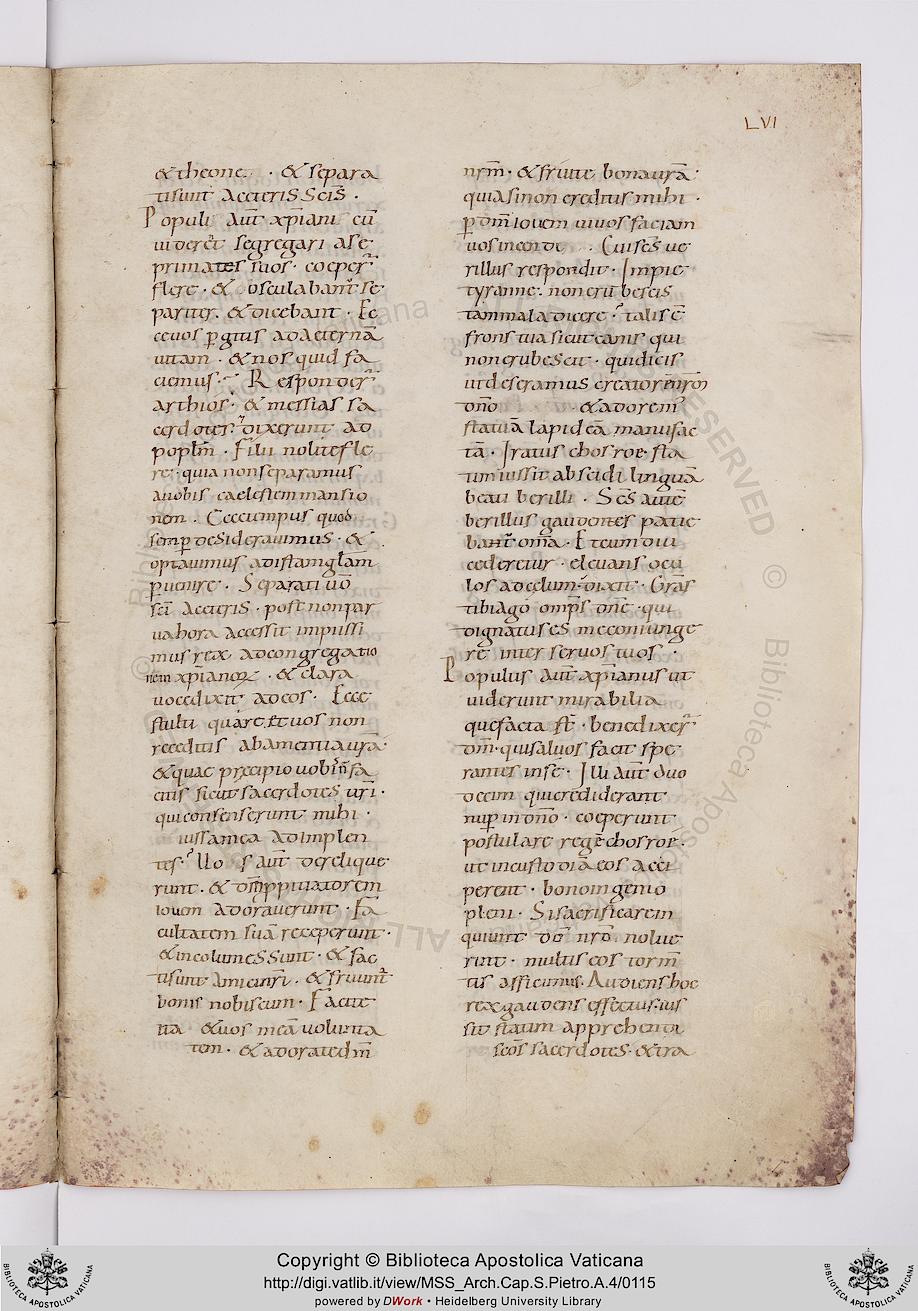 LVI
& theone · & separa
ti sunt a ceteris scis̄ ·
Populi aut̄ xp̄iani cū
uiderēt segregari a se
primates suos · coeper̄
flere · & osculabant̄ se
pariter · & dicebant · Ec
ce uos ꝑgitis ad aeternā
uitam · & nos quid fa
ciemus · Responder̄
arthios · & messias sa
cerdotes · dixerunt ad
popl̄m · Filii nolite fle
re · quia non separamus
a uobis caelestem mansio
nem · Ecce tempus quod
semꝑ desiderauimus · &
optauimus ad istam gl̄am
ꝑuenire · Separati uō
sc̄i a ceteris · post non par
ua hora accessit impiissi
mus rex ad congregatio
nem xp̄ianoꝝ · & clara
uoce dixit ad eos · Ecce
stulti quare et uos non
receditis ab amentia ur̄a
& quae precipio uobis n̄ fa
citis sicut sacerdotes ur̄i ·
qui consenserunt mihi ·
iussa mea adimplen
tes · Illo s aut̄ derelique
runt · & dm̄ ppitiatorem
iouem adorauerunt · Fa
cultatem suā receperunt ·
& incolumes sunt · & fac
ti sunt amici nr̄i · & fruunt̄
bonis nobiscum · Facite
ita & uos meā uolunta
tem · & adorate dm̄
nr̄m · & fruite bona ur̄a ·
quia si non creditis mihi ·
ꝑ dm̄ iouem uiuos faciam
uos incende Cui sēs ue
rillus respondit · Impie
tyranne · non erubescis
tam mala dicere · talis ē
frons tua sicut canis qui
non erubescit · qui dicis
ut deseramus creatorē nr̄m
dn̄o & adorem̄
statuā lapideā manu fac
tā · Iratus chosroe · sta
tim iussit abscidi linguā
beati berilli · Scs̄ aute
berillus gaudentes patie
bant̄ om̄a · Et cum diu
cederetur · eleuans ocu
los ad celum · dixit · Gr̄as
tibi ago omp̄s dn̄e · qui
dignatus es me coniunge
re inter seruos tuos ·
Populus aut̄ xp̄ianus ut
uiderunt mirabilia
que facta st̄ · benedixer̄
dm̄ · qui saluos facit spe
rantes in se · Illi aut̄ duo
decim qui crediderant
nuꝑ in dn̄o · coeperunt
postulare regē chosroe ·
ut in custodia eos acci
perent · bono ingenio
pleni · Si sacrificare in
quiunt dō nr̄o nolue
rint · multis eos torm̄
tis afficimus · Audiens hoc
rex gaudens effectus · ius
sit statim apprehenti
scōs sacerdotes · & tra
Copyright © Biblioteca Apostolica Vaticana
http://digi.vatlib.it/view/MSS_Arch.Cap.S.Pietro.A.4/0115
powered by DWork • Heidelberg University Library